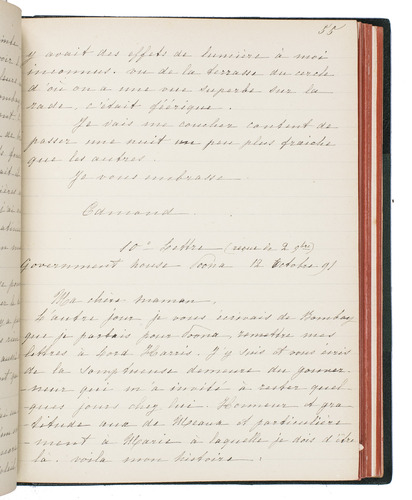 55
y avait des effets de lumière à moi
inconnus. vu de la terrasse du cercle
d'où on a une vue superbe sur la
rade. c'était féerique.
Je vais me coucher content de
passer une nuit un peu plus fraiche
que les autres.
Je vous embrasse
Edmond
10e Lettre (reçue le 2 9bre)
Government house Poona 12 Octobre 91
Ma chère maman.
L'autre jour je vous écrivais de Bombay
que je partais pour Poona, remettre mes
lettres à Lord Harris. J'y suis et vous écris
de la somptueuse demeure du gouver
neur qui m'a invité à rester quel
ques jours chez lui. Honneur et gra
titude aux de Meaux et particulière
ment à Marie à laquelle je dois d'être
là. voila mon histoire :